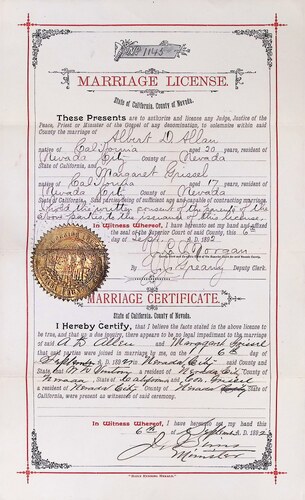 No 1145
MARRIAGE LICENSE.
State of California, County of Nevada.
These Presents are to authorize and license any Judge, Justice of the
Peace, Priest or Minister of the Gospel of any denomination, to solemnize within said
County the marriage of Albert D Allan
native of California aged 20 years, resident of
Nevada City County of Nevada
State of California, and Margaret Grissel
native of California aged 17 years, resident of
Nevada City County of Nevada
State of California, Said parties being of sufficient age and capable of contracting marriage.
and the written consent of the parents of the
above parties to the issuance of this license,
In Witness Whereof, I have hereunto set my hand and affixed
the seal of the Superior Court of said County, this 6th
day of Sept A.D. 1892
J. L. Morgan
Deputy Clerk.
MARRIAGE CERTIFICATE.
State of California, County of Nevada.
I Hereby Certify, that I believe the facts stated in the above license to
be true, and that upon due inquiry, there appears to be no legal impediment to the marriage
of said A D Allen and Margaret Grissel
that said parties were joined in marriage by me, on 6th day of
September A.D. 1892 in Nevada City that
a resident of Nevada City County of
Nevada State of California and Geo. Grissel
a resident of Nevada City County of Nevada State of
California, were present as witnesses of said ceremony.
In Witness Whereof, I have hereunto set my hand this
6th day of September A.D. 1892
J. Sims
Minister
"DAILY EVENING HERALD."